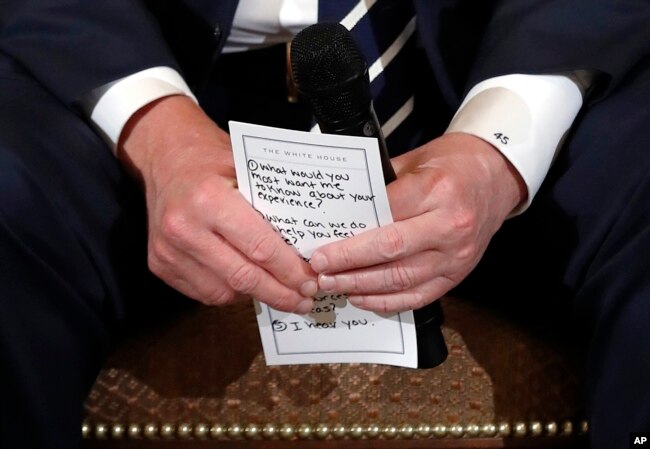 THE WHITE HOUSE
① What would you
most want me
to know about your
experience?
What can we do
help you feel
?
⑤ I hear you.
45
AP